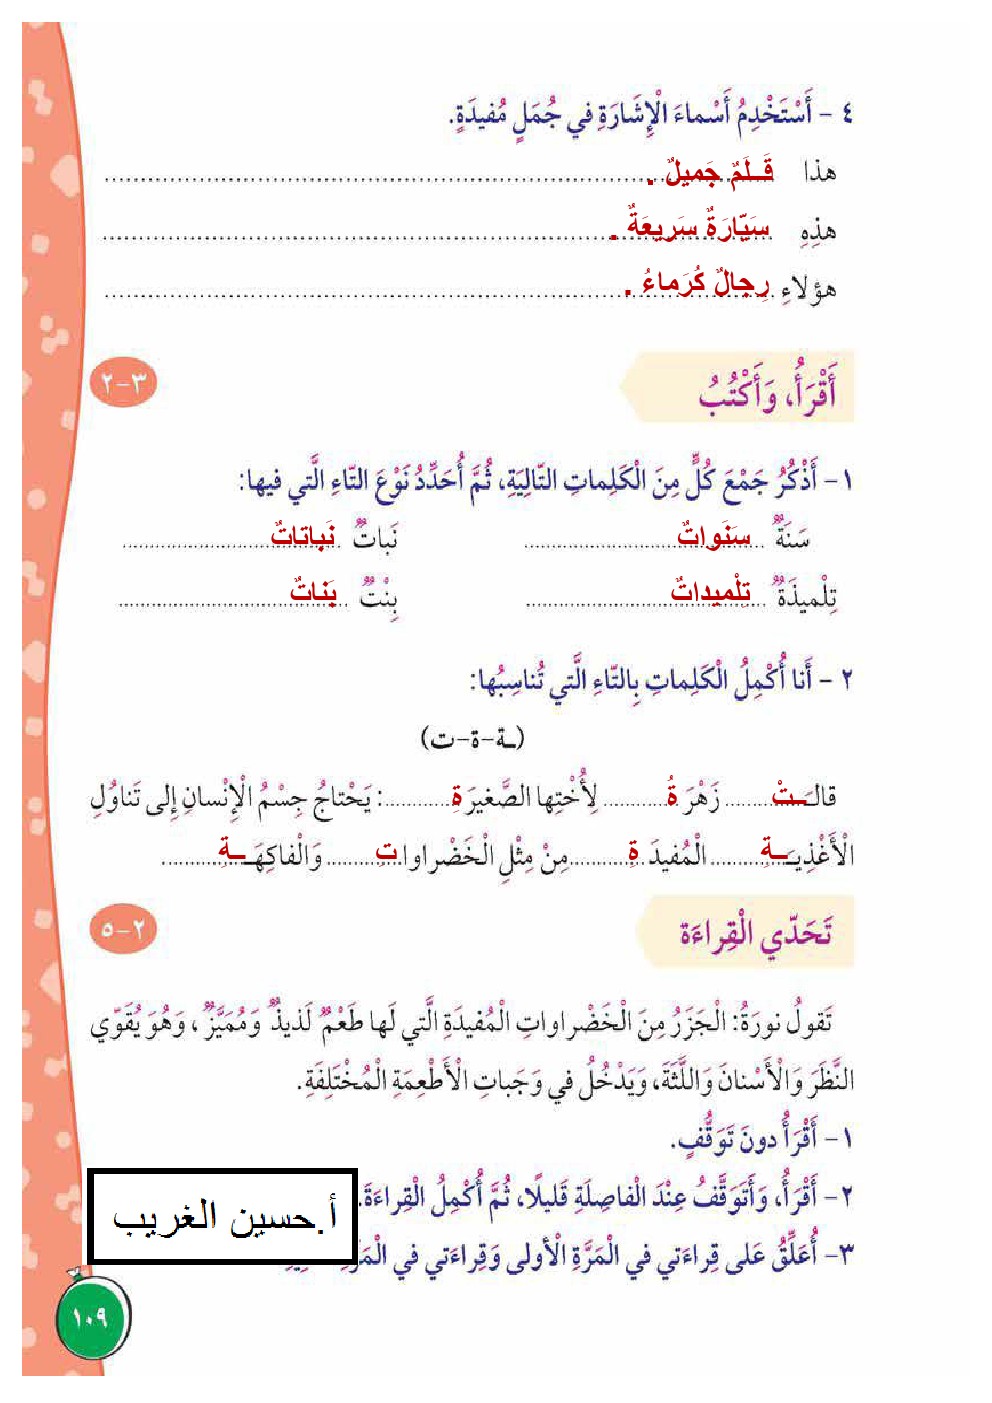 ٤ - أَسْتَخْدِمُ أَسْماءَ الْإِشَارَةِ في جُمَلٍ مُفيدَةٍ.
هذا قَــلَمٌ جَميلٌ .
هذِهِ سَيّارَةٌ سَريعَةٌ .
هؤلاءِ رِجالٌ كُرَماءُ .
أَقْرَأُ، وَأَكْتُبُ
٣-٢
١- أَذْكُرُ جَمْعَ كُلٍّ مِنَ الْكَلِماتِ التّالِيَةِ، ثُمَّ أُحَدِّدُ نَوْعَ التّاءِ الَّتي فيها:
سَنَةٌ سَنَواتٌ نَباتٌ نَباتاتٌ
تِلْميذَةٌ تِلْميداتٌ بِنْتٌ بَناتٌ
٢ - أَنا أُكْمِلُ الْكَلِماتِ بِالتّاءِ الَّتي تُناسِبُها:
(ـة-ة-ت)
قالَـــتْ زَهْرَةُ لِأُخْتِها الصَّغيرَةِ: يَحْتاجُ جِسْمُ الْإِنْسانِ إِلى تَناوُلِ
الْأَغْذِيَـــةِ الْمُفيدَةِ مِنْ مِثْلِ الْخَضْراواتِ وَالْفاكِهَـــةِ
تَحَدّي الْقِراءَة
٢-٥
تَقولُ نورَةُ: الْجَزَرُ مِنَ الْخَضْراواتِ الْمُفيدَةِ الَّتي لَها طَعْمٌ لَذيذٌ وَمُمَيَّزٌ، وَهُوَ يُقَوّي
النَّظَرَ وَالْأَسْنانَ وَاللَّثَةَ، وَيَدْخُلُ في وَجَباتِ الْأَطْعِمَةِ الْمُخْتَلِفَةِ.
١- أَقْرَأُ دونَ تَوَقُّفٍ.
٢- أَقْرَأُ، وَأَتَوَقَّفُ عِنْدَ الْفاصِلَةِ قَليلًا، ثُمَّ أُكْمِلُ الْقِراءَةَ.
أ.حسين الغريب
٣- أُعَلِّقُ عَلى قِراءَتي في الْمَرَّةِ الْأولى وَقِراءَتي في
١٠٩